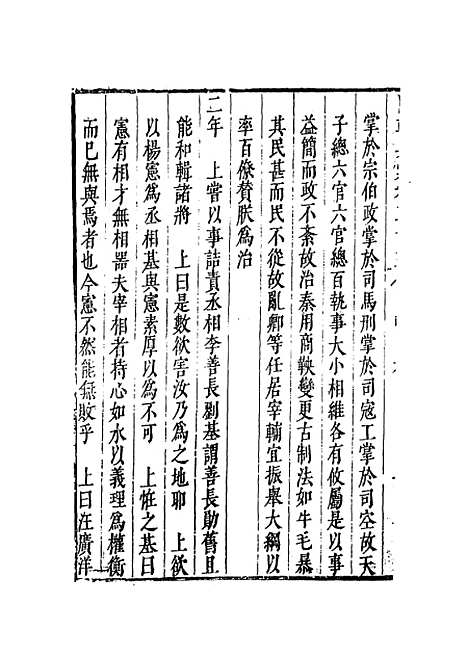 掌於宗伯政掌於司馬刑掌於司寇工掌於司空故天
子總六官六官總百執事大小相維各有攸屬是以事
益簡而政不紊故治秦用商鞅變更古制法如牛毛暴
其民甚而民不從故亂卿等任居宰輔宜振舉大綱以
率百僚贊朕為治
二年　上嘗以事詰責丞相李善長劉基謂善長勛舊且
能和輯諸將　上曰是數欲害汝乃為之地耶　上欲
以楊憲為丞相基與憲素厚以為不可　上恠之基曰
憲有相才無相器夫宰相者持心如水以義理為權衡
而已無與焉者也今憲不然能無敗乎　上曰在廣洋